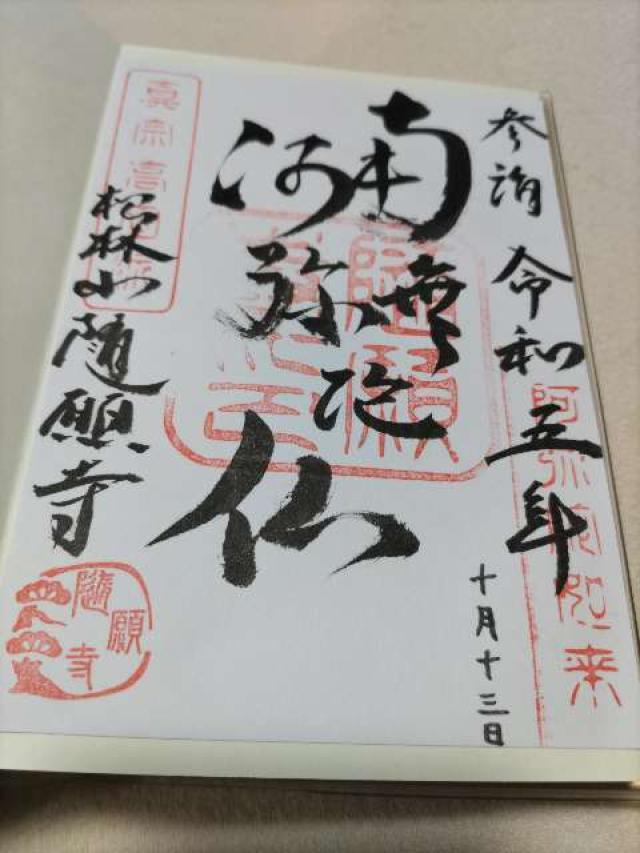 参詣 令和五年
十月十三日
阿弥陀如来
南無
阿弥陀仏
随願
松林山随願寺
真宗高田派
随願寺